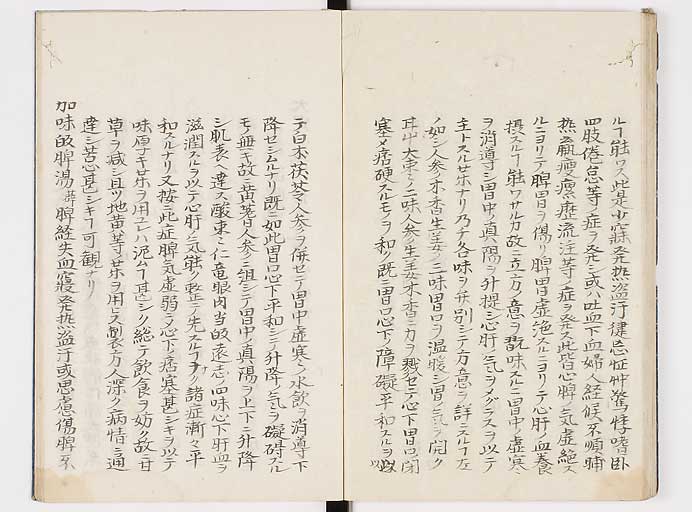 ルヿ能ワス此是少寐発熱盗汗健忘怔忡驚悸嗜卧
四肢倦怠等ノ症ヲ発シ或ハ吐血下血婦人経候不順晡
熱羸瘦瘰癧流注等ノ症ヲ発ス此皆心脾ノ気虚絶ス
ルニヨリテ脾胃ヲ傷リ脾胃虚絶スルニヨリテ心肝ノ血養
摂スルヿ能ワサルカ故ニ立方ノ意ヲ翫味スルニ胃中ノ虚寒
ヲ消導シ胃中ノ真陽ヲ升提シ心肝ノ気ヲメグラスヲ以テ
主トスル茋ナリ乃チ各味ヲ弁別シテ方意ヲ詳ニスルヿ左
ノ如シ人参木香生姜ノ三味胃口ヲ温暖シ胃ノ気ヲ開ク
甘艸大棗ノ二味人参生姜木香ニ力ヲ戮セテ心下胃口閉
塞メ痞硬スルモノヲ和ク既ニ胃口心下ノ障礙平和スルヲ以
テ白朮茯苓人参ヲ併セテ胃中虚寒ノ水飲ヲ消導下
降セシムルナリ既ニ如此胃口心下平和シテ升降ノ気ヲ礙碍スル
モノ無キ故ニ黄芪白人参ニ組シテ胃中ノ真陽ヲ上下ニ升降
シ肌表ヘ達ス酸棗仁竜眼肉当皈遠志ノ四味心下肝血ヲ
滋潤スルヲ以テ心肝ノ気能ク整テ先スルナリ諸症漸々平
和スルナリ又按ニ此症脾気虚弱ニテ心下ノ痞塞甚シキヲ以テ
味厚キ茋ヲ用ユレハ泥ムヿ甚シク総テ飲食ヲ妨ク故ニ甘
草ヲ減シ且ツ地黄等ノ茋ヲ用ヒス製方人深ク病情ニ通
達シ苦心甚シキヿ可観ナリ
加味皈脾湯 脾経失血寤発熱盗汗或思慮傷脾不